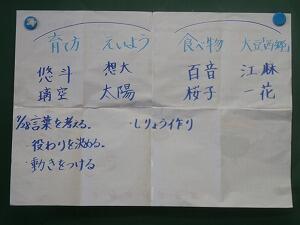 育て方 えいよう 食べ物 大豆「西郷」
悠斗 想大 百音 江麻
璃空 太陽 桜子 一花
1/28言葉を考える。 ・しりょう作り
役わりを決める。
・動きをつける